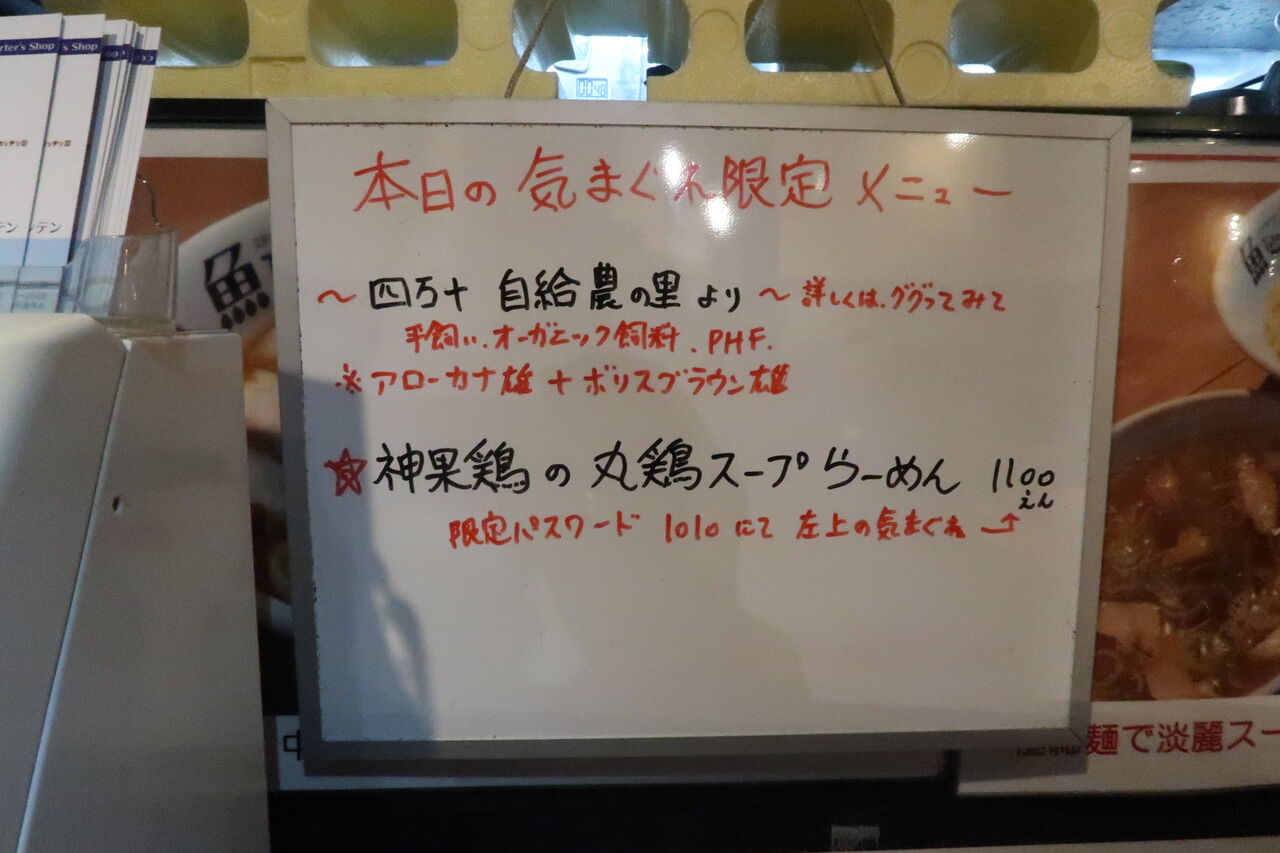 rter's Shop
s Shop
テン
ンテン
00:48
魚
本日の気まぐれ限定メニュー
〜四万十 自給農の里より〜 詳しくは、ググってみて
平飼い、オーガニック飼料、PHF.
※アローカナ雄+ボリスブラウン雄
☆神果鶏の丸鶏スープらーめん 1100
えん
限定パスワード 1010にて 左上の気まぐれ
魚
中
麺で淡麗スー